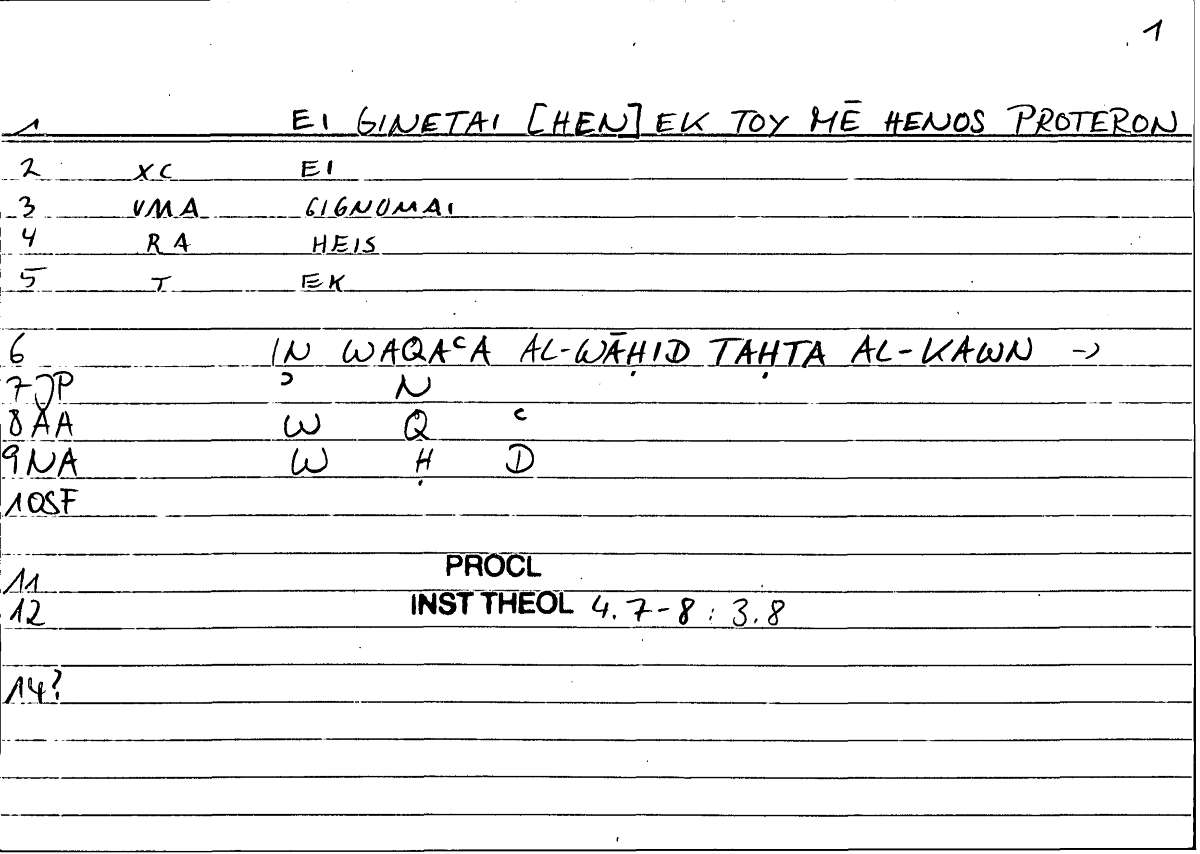 1
1 EI GINETAI [HEN] EK TOY MĒ HENOS PROTERON
2 XC EI
3 VMA GIGNOMAI
4 RA HEIS
5 T EK
6 IN WAQAᶜA AL-WĀḤID TAḤTA AL-KAWN →
7 JP ᵓ N
8 AA W Q ᶜ
9 NA W Ḥ D
10 SF
11 PROCL
12 INST THEOL 4.7-8 : 3.8
14?